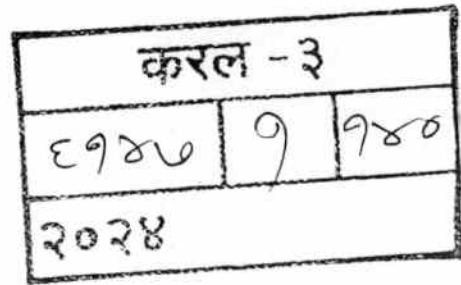 करल - ३
६१४७ १ १४०
२०२४